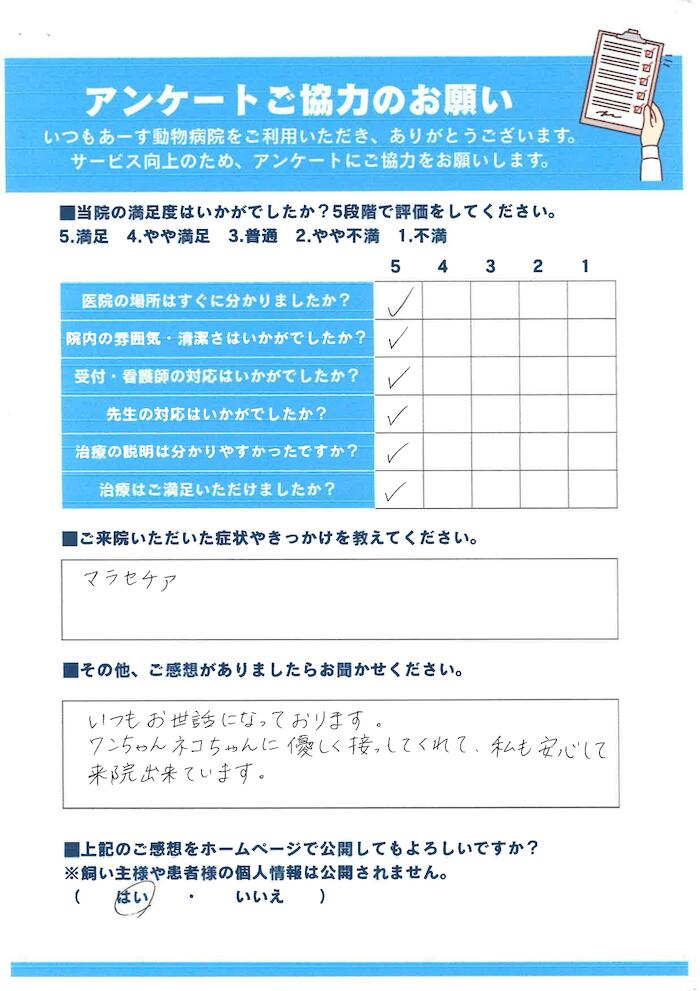 アンケートご協力のお願い
いつもあーす動物病院をご利用いただき、ありがとうございます。
サービス向上のため、アンケートにご協力をお願いします。
■当院の満足度はいかがでしたか？5段階で評価をしてください。
5.満足 4.やや満足 3.普通 2.やや不満 1.不満
5 4 3 2 1
医院の場所はすぐに分かりましたか？ ✓
院内の雰囲気・清潔さはいかがでしたか？ ✓
受付・看護師の対応はいかがでしたか？ ✓
先生の対応はいかがでしたか？ ✓
治療の説明は分かりやすかったですか？ ✓
治療はご満足いただけましたか？ ✓
■ご来院いただいた症状やきっかけを教えてください。
マラセチア
■その他、ご感想がありましたらお聞かせください。
いつもお世話になっております。
ワンちゃんネコちゃんに優しく接っしてくれて、私も安心して
来院出来ています。
■上記のご感想をホームページで公開してもよろしいですか？
※飼い主様や患者様の個人情報は公開されません。
（ はい ・ いいえ ）